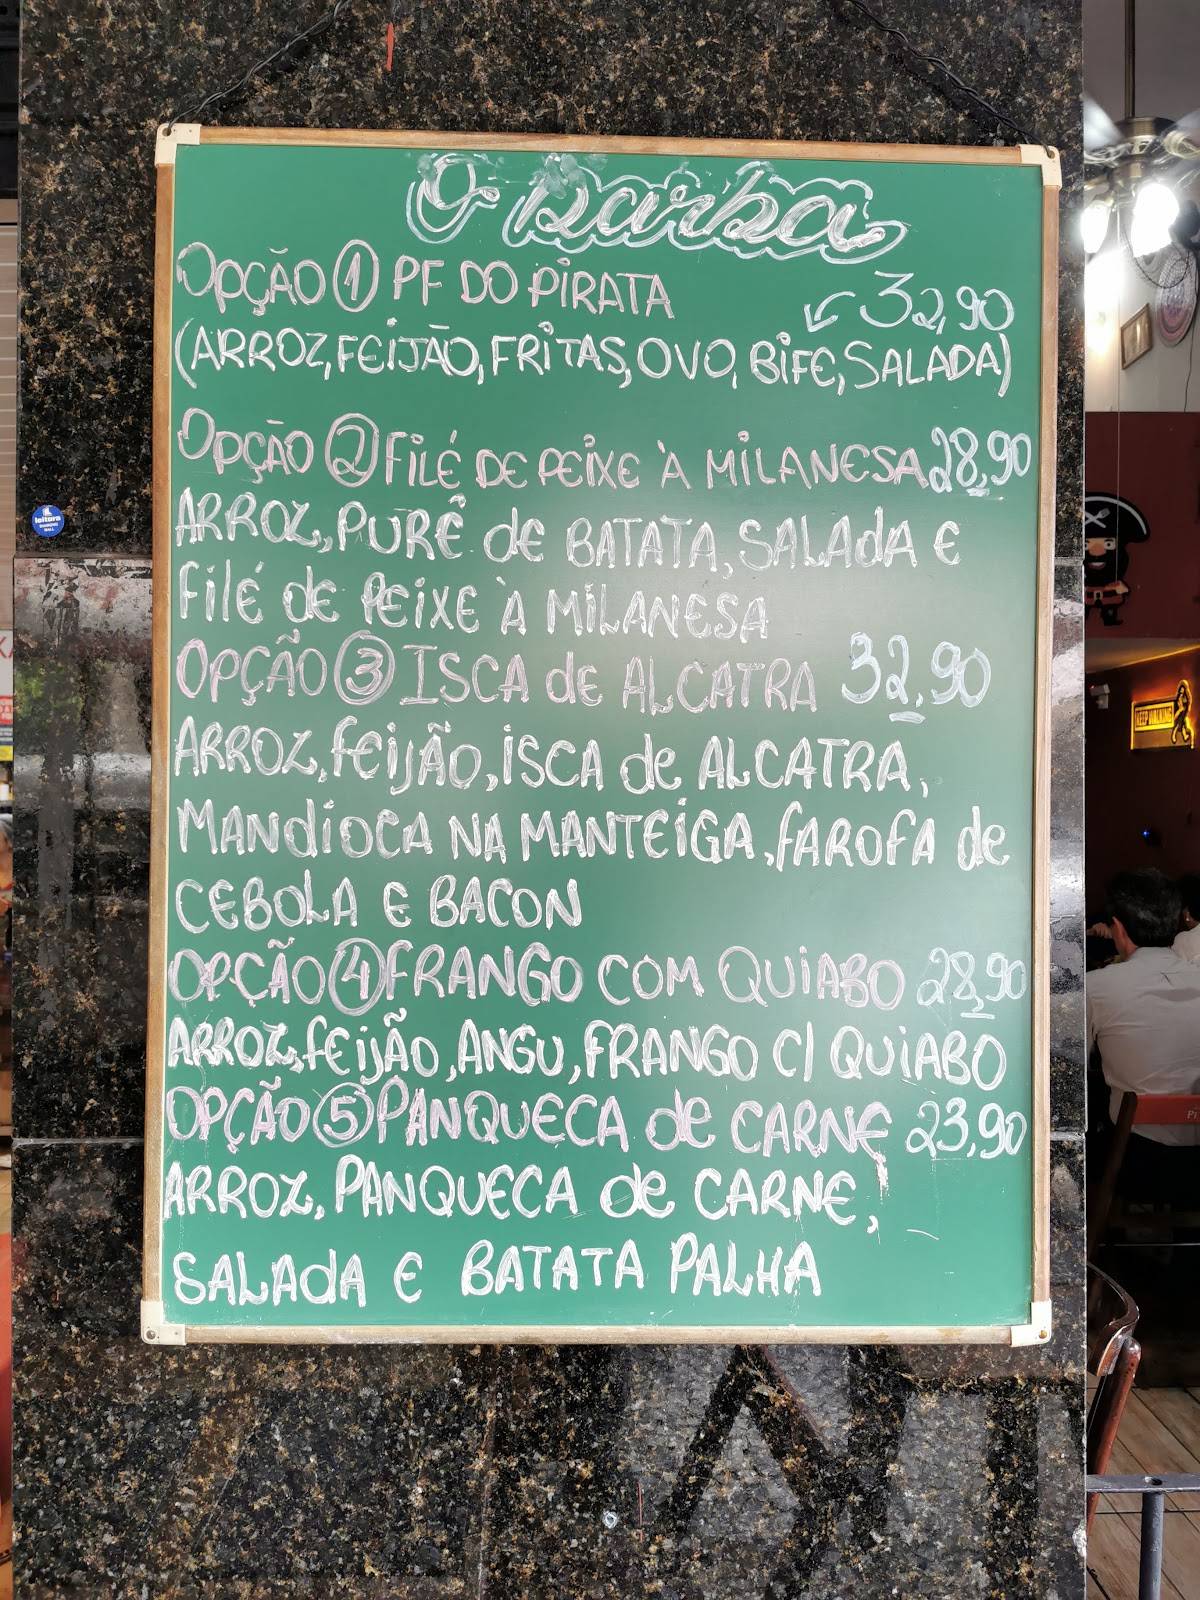 O Barba
OPÇÃO 1 PF DO PIRATA
32,90
(ARROZ, FEIJÃO, FRITAS, OVO, BIFE, SALADA)
OPÇÃO 2 FILÉ DE PEIXE À MILANESA 28,90
ARROZ, PURÊ de BATATA, SALADA E
FILÉ de PEIXE À MILANESA
OPÇÃO 3 ISCA de ALCATRA 32,90
ARROZ, FEIJÃO, ISCA de ALCATRA,
MANDIOCA NA MANTEIGA, FAROFA de
CEBOLA E BACON
OPÇÃO 4 FRANGO COM QUIABO 28,90
ARROZ, FEIJÃO, ANGU, FRANGO C/ QUIABO
OPÇÃO 5 PANQUECA de CARNE 23,90
ARROZ, PANQUECA de CARNE,
SALADA E BATATA PALHA
leitora
KEEP WALKING